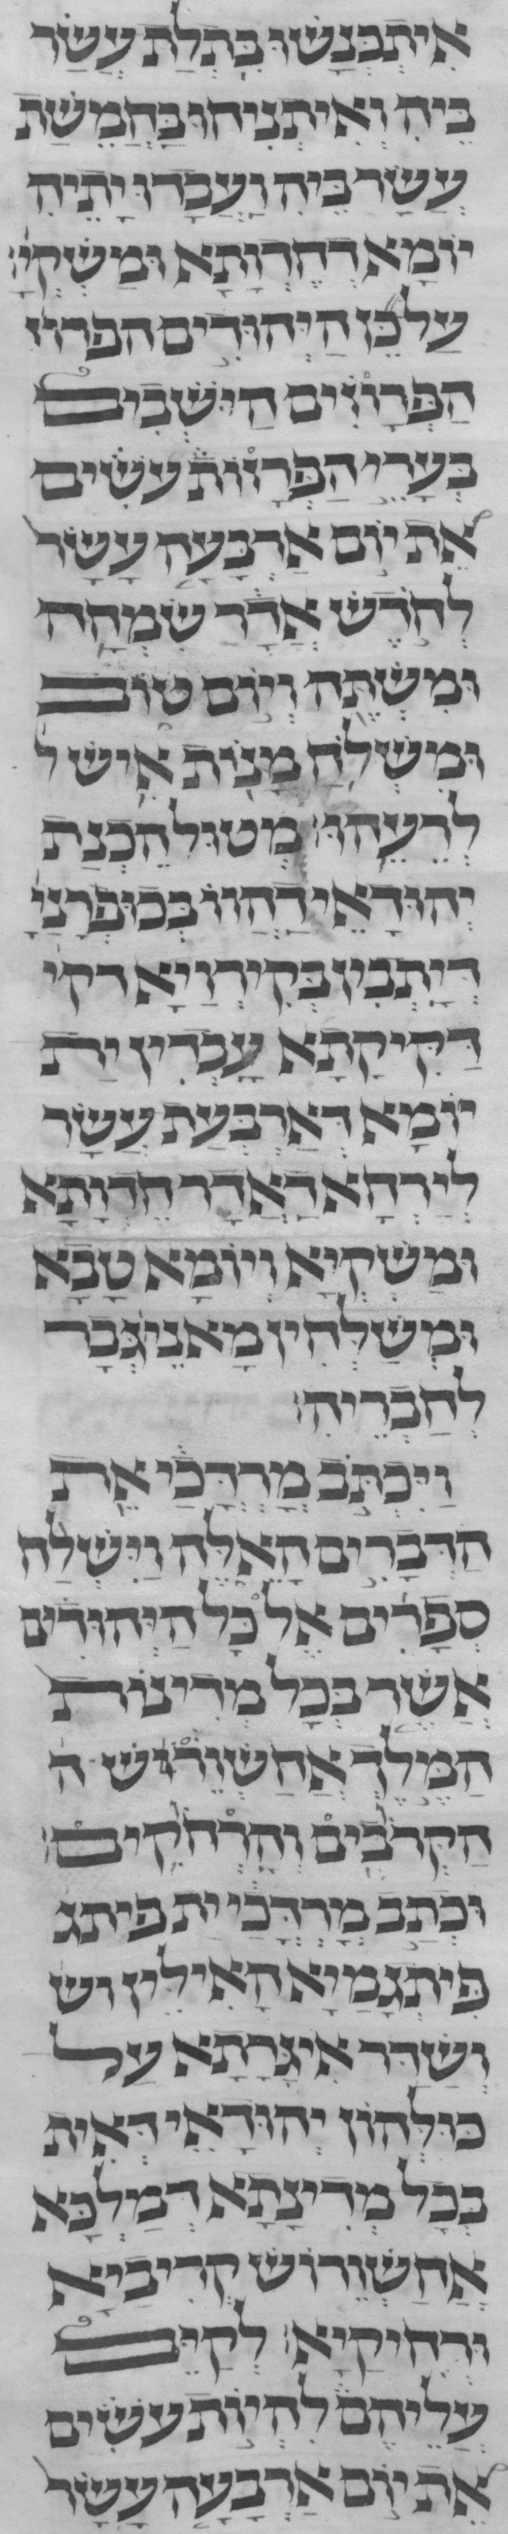 אִיתְכְנָשׁוּ בִּתְלַת עֲשַׂר
בֵּיהּ וְאִיתְנִיחוּ בַּחֲמֵשַׁת
עֲשַׂר בֵּיהּ וַעֲבָדוּ יָתֵיהּ
יוֹמָא דְּחֶדְוָתָא וּמַשְׁקְיָ׃
עַל כֵּן הַיְּהוּדִים הפרוז
הַפְּרָוֹזִים הַיּשְׁבִים
בְּעָרֵי הַפְּרָזוֹת עֹשִׂים
אֵת יוֹם אַרְבָּעָה עָשָׂר
לְחֹדֶשׁ אֲדָר שִׂמְחָה
וּמִשְׁתֶּה וְיוֹם טוֹב
וּמִשְׁלֹחַ מָנוֹת אִישׁ ל
לְרֵעֵהוּ׃ מְטוּל הֵכְנַת
יְהוּדָאֵי דַּהֲווֹ בְּכוּפְרָנֵי
דְּיָתְבִין בְּקִירְוַיָא דקי
דַּקִּיקָתָא עָבְדִין יַת
יוֹמָא דְּאַרְבְּעַת עֲשַׂר
לְיַרְחָא דַּאֲדָר חֶדְוָתָא
וּמַשְׁקְיָא וְיוֹמָא טָבָא
וּמְשַׁלְּחִין מָאנֵי גְּבַר
לְחַבְרֵיהּ׃
וַיִּכְתֹּב מָרְדֳּכַי אֶת
הַדְּבָרִים הָאֵלֶּה וַיִּשְׁלַח
סְפָרִים אֶל כָּל הַיְּהוּדִים
אֲשֶׁר בְּכָל מְדִינוֹת
הַמֶּלֶךְ אֲחַשְׁוֵרוֹשׁ ה
הַקְּרֹבִים וְהָרְחֹקִים׃
וּכְתַב מָרְדֳּכַי יַת פיתג
פִּיתְגָמַיָּא הָאִילֵין וש
וְשַׁדַּר אִיגְּרָתָא עַל
כּוּלְּהוֹן יְהוּדָאֵי דְּאִית
בְּכָל מְדִינָתָא דְּמַלְכָּא
אֲחַשְׁוֵרוֹשׁ קְרִיבַיָּא
וּרְחִיקַיָּא׃ לְקַיֵּם
עֲלֵיהֶם לִהְיוֹת עֹשִׂים
אֵת יוֹם אַרְבָּעָה עָשָׂר